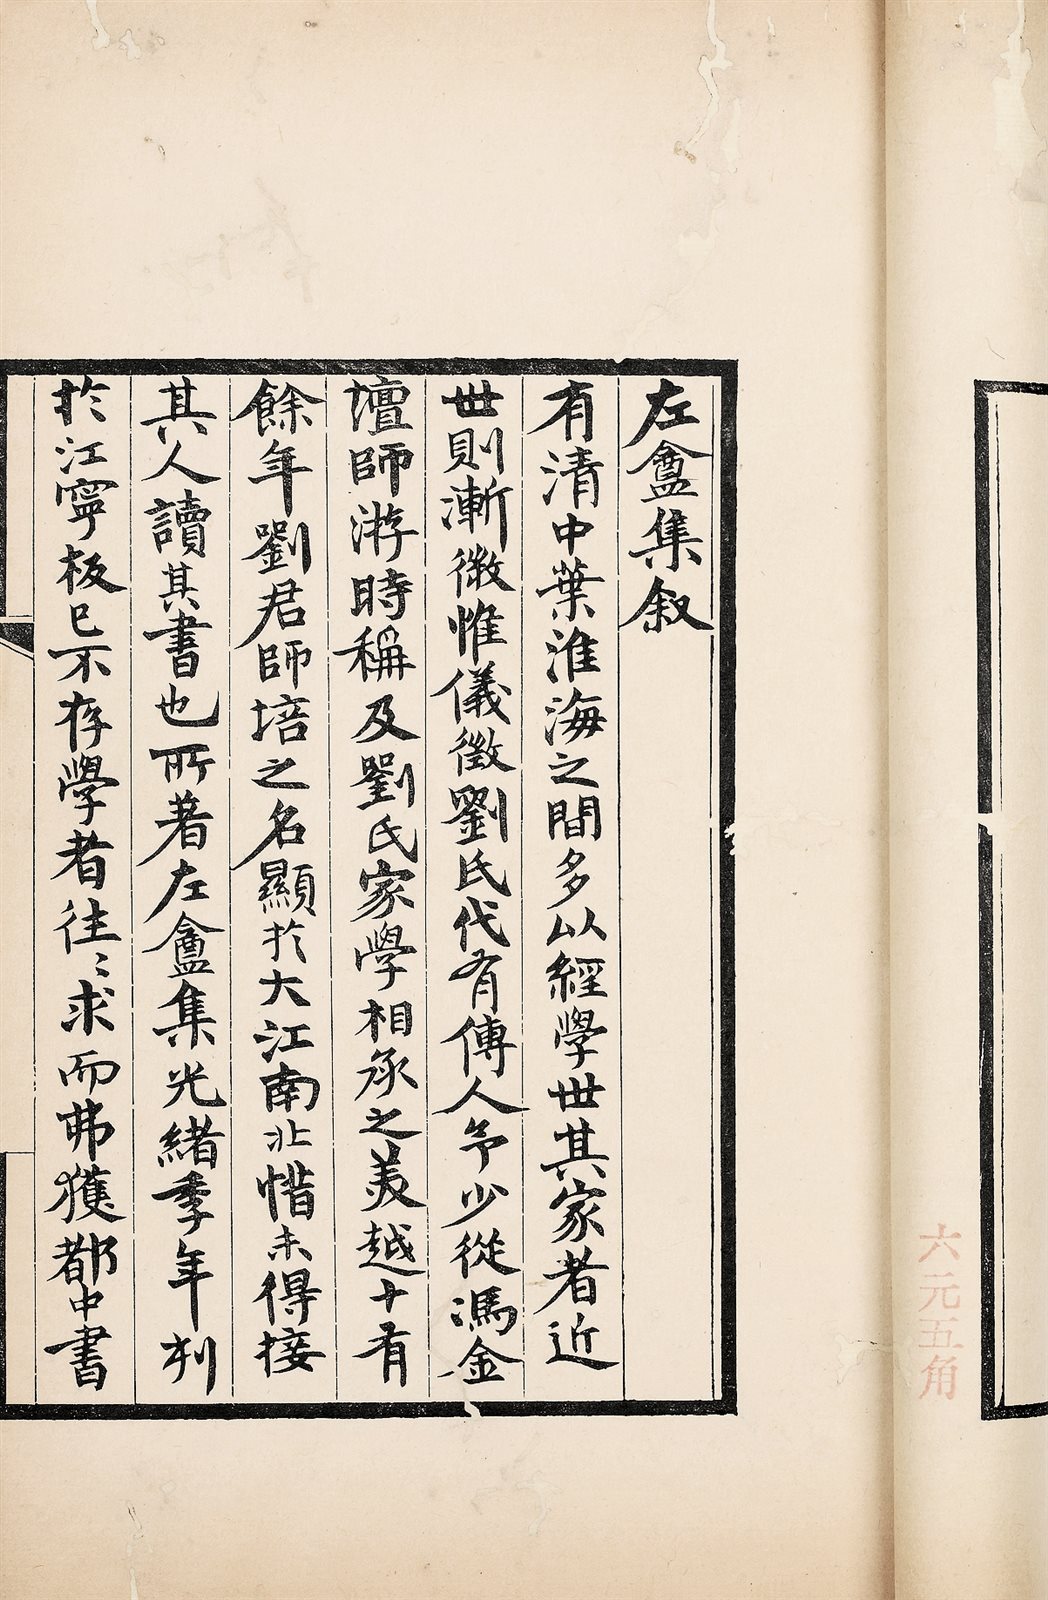 左盦集叙
有清中葉淮海之間多以經學世其家者近
世則漸微惟儀徵劉氏代有傳人予少從馮金
壇師游時稱及劉氏家學相承之美越十有
餘年劉君師培之名顯扵大江南北惜未得接
其人讀其書也所著左盦集光緒季年刋
扵江寧板已不存學者往〻求而弗獲都中書
六元五角